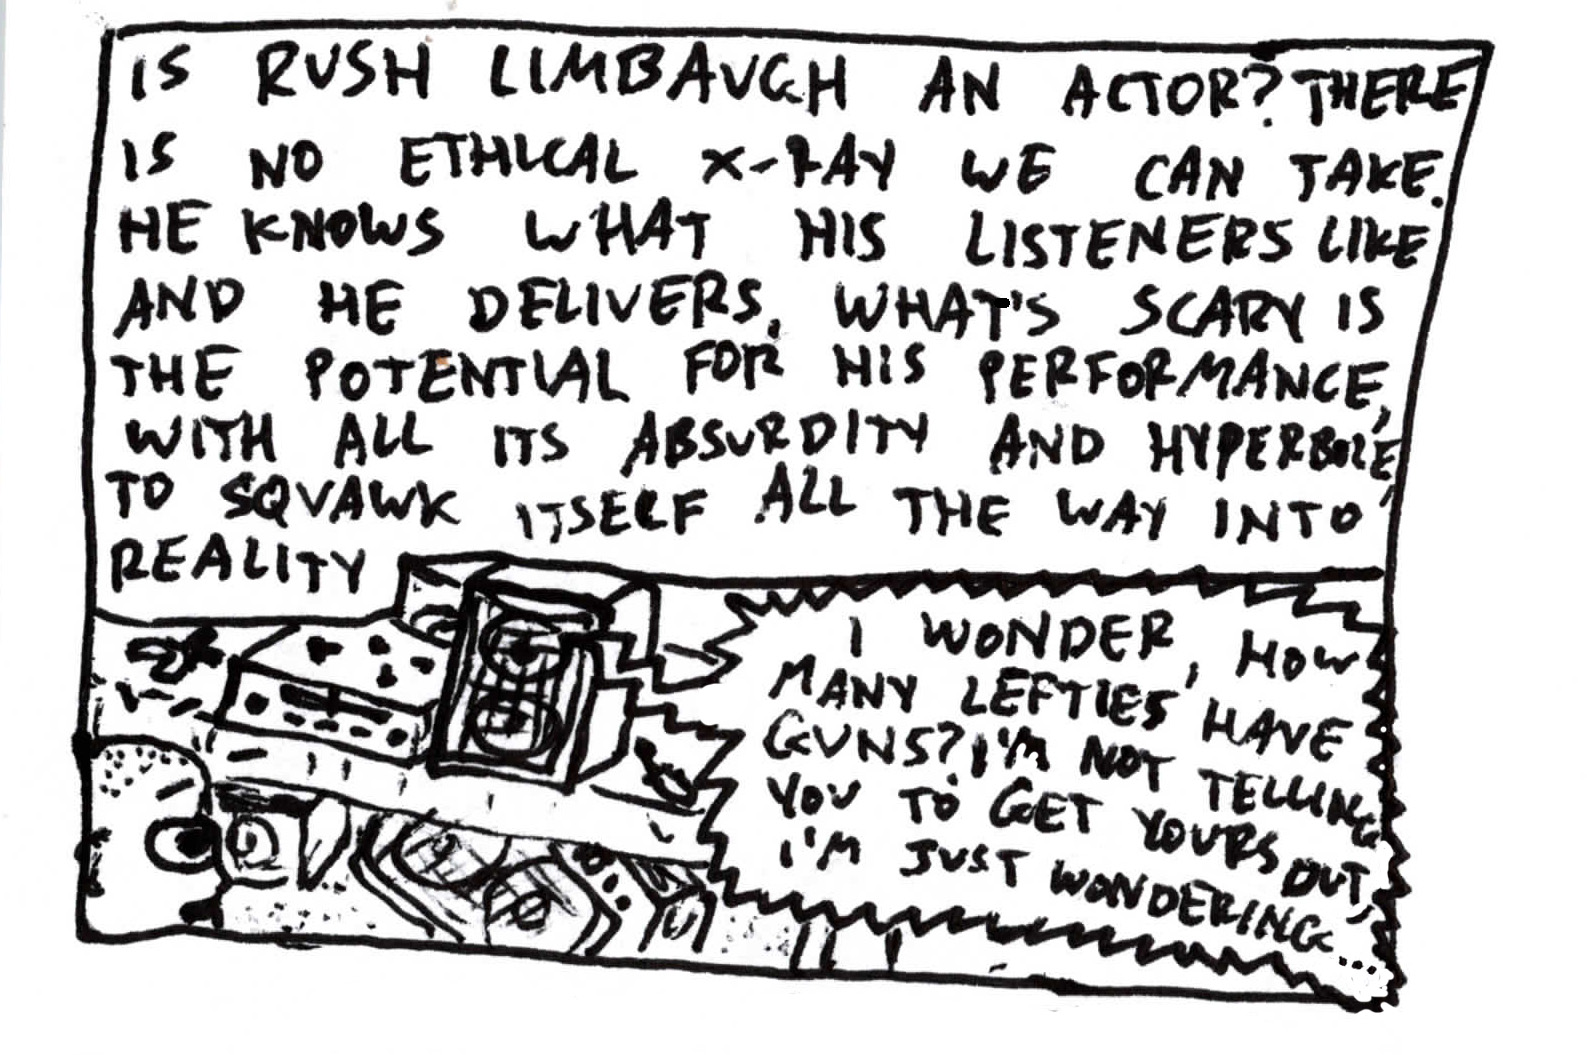 IS RUSH LIMBAUGH AN ACTOR? THERE
IS NO ETHICAL X-RAY WE CAN TAKE.
HE KNOWS WHAT HIS LISTENERS LIKE
AND HE DELIVERS. WHAT'S SCARY IS
THE POTENTIAL FOR HIS PERFORMANCE,
WITH ALL ITS ABSURDITY AND HYPERBOLE,
TO SQUAWK ITSELF ALL THE WAY INTO
REALITY
I WONDER, HOW
MANY LEFTIES HAVE
GUNS? I'M NOT TELLING
YOU TO GET YOURS OUT,
I'M JUST WONDERING...